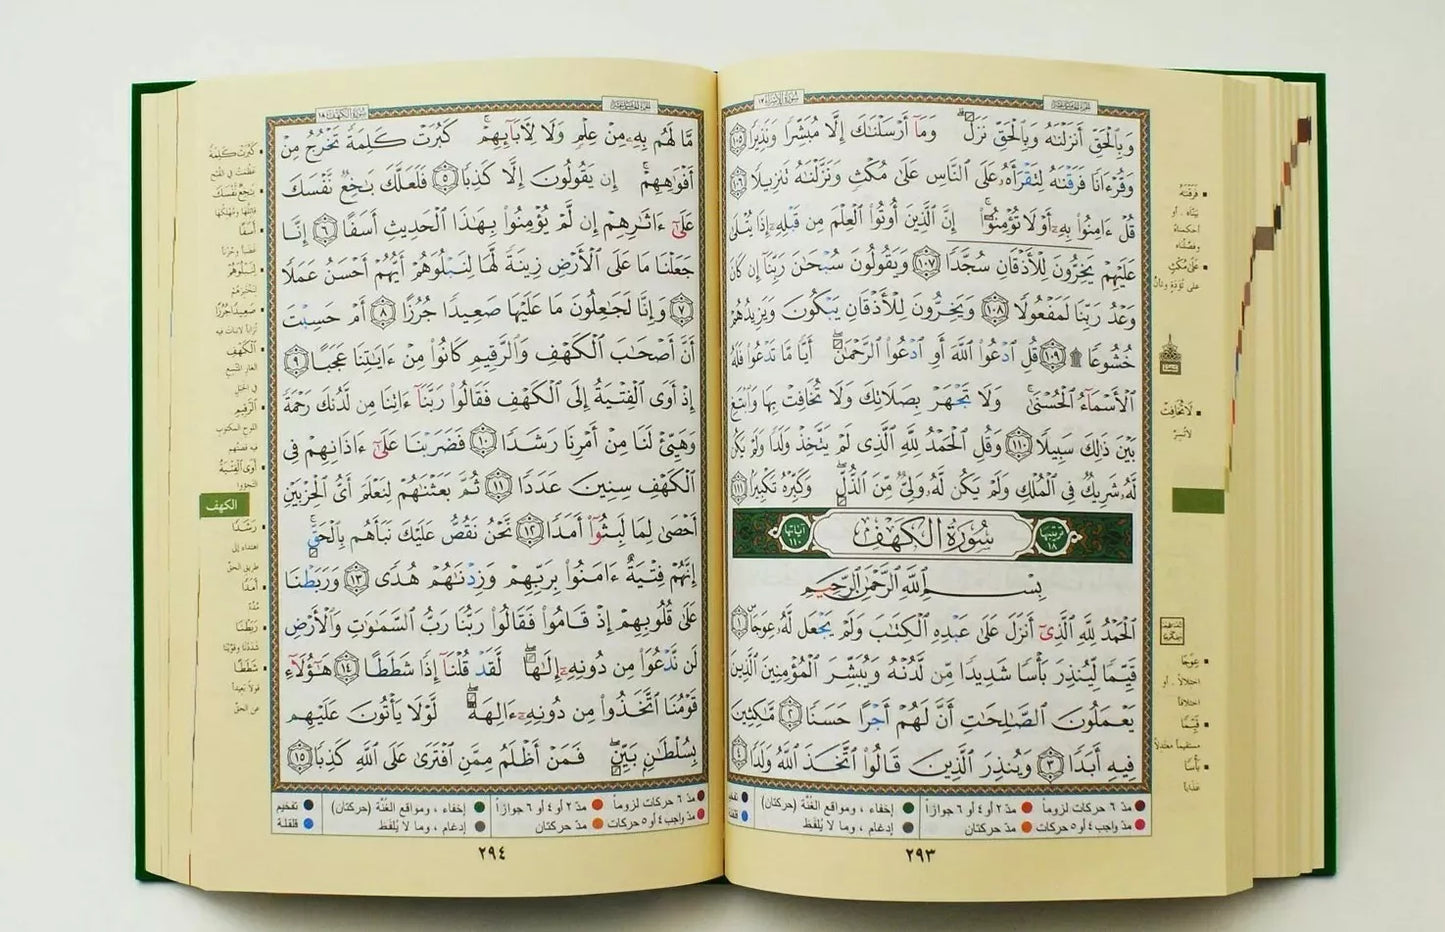 سُورَةُ الإِسْرَاء ١٧
وَبِالْحَقِّ أَنزَلْنَٰهُ وَبِالْحَقِّ نَزَلَ ۗ وَمَآ أَرْسَلْنَٰكَ إِلَّا مُبَشِّرًا وَنَذِيرًا ١٠٥
وَقُرْءَانًا فَرَقْنَٰهُ لِتَقْرَأَهُۥ عَلَى النَّاسِ عَلَىٰ مُكْثٍ وَنَزَّلْنَٰهُ تَنزِيلًا ١٠٦
قُلْ ءَامِنُوا۟ بِهِۦٓ أَوْ لَا تُؤْمِنُوٓا۟ ۚ إِنَّ الَّذِينَ أُوتُوا۟ الْعِلْمَ مِن قَبْلِهِۦٓ إِذَا يُتْلَىٰ
عَلَيْهِمْ يَخِرُّونَ لِلْأَذْقَانِ سُجَّدًا ١٠٧ وَيَقُولُونَ سُبْحَٰنَ رَبِّنَآ إِن كَانَ
وَعْدُ رَبِّنَا لَمَفْعُولًا ١٠٨ وَيَخِرُّونَ لِلْأَذْقَانِ يَبْكُونَ وَيَزِيدُهُمْ
خُشُوعًا ۩ ١٠٩ قُلِ ادْعُوا۟ اللَّهَ أَوِ ادْعُوا۟ الرَّحْمَٰنَ ۖ أَيًّا مَّا تَدْعُوا۟ فَلَهُ
الْأَسْمَآءُ الْحُسْنَىٰ ۚ وَلَا تَجْهَرْ بِصَلَاتِكَ وَلَا تُخَافِتْ بِهَا وَابْتَغِ
بَيْنَ ذَٰلِكَ سَبِيلًا ١١٠ وَقُلِ الْحَمْدُ لِلَّهِ الَّذِى لَمْ يَتَّخِذْ وَلَدًا وَلَمْ يَكُن
لَّهُۥ شَرِيكٌ فِى الْمُلْكِ وَلَمْ يَكُن لَّهُۥ وَلِىٌّ مِّنَ الذُّلِّ ۖ وَكَبِّرْهُ تَكْبِيرًا ١١١
ترتيبها ١٨ سُورَةُ الْكَهْفِ آياتها ١١٠
بِسْمِ اللَّهِ الرَّحْمَٰنِ الرَّحِيمِ
الْحَمْدُ لِلَّهِ الَّذِىٓ أَنزَلَ عَلَىٰ عَبْدِهِ الْكِتَٰبَ وَلَمْ يَجْعَل لَّهُۥ عِوَجَا ۜ ١
قَيِّمًا لِّيُنذِرَ بَأْسًا شَدِيدًا مِّن لَّدُنْهُ وَيُبَشِّرَ الْمُؤْمِنِينَ الَّذِينَ
يَعْمَلُونَ الصَّٰلِحَٰتِ أَنَّ لَهُمْ أَجْرًا حَسَنًا ٢ مَّٰكِثِينَ
فِيهِ أَبَدًا ٣ وَيُنذِرَ الَّذِينَ قَالُوا۟ اتَّخَذَ اللَّهُ وَلَدًا ٤
مدّ ٦ حركات لزوماً مدّ ٢ أو ٤ أو ٦ جوازاً إخفاء ، ومواقع الغُنَّة (حركتان) تفخيم
مدّ واجب ٤ أو ٥ حركات مدّ حركتان إدغام ، وما لا يُلفَظ قلقلة
٢٩٣
فَرَقْنَٰهُ
بيّنّاه . أو
أحكمناه
وفصّلناه
عَلَىٰ مُكْثٍ
لَا تُخَافِتْ
لا تُسِرّ
عِوَجًا
اختلالاً . أو
اختلافاً
قَيِّمًا
مستقيماً معتدلاً
بَأْسًا
عَذاباً
سُورَةُ الْكَهْفِ ١٨
مَّا لَهُم بِهِۦ مِنْ عِلْمٍ وَلَا لِءَابَآئِهِمْ ۚ كَبُرَتْ كَلِمَةً تَخْرُجُ مِنْ
أَفْوَٰهِهِمْ ۚ إِن يَقُولُونَ إِلَّا كَذِبًا ٥ فَلَعَلَّكَ بَٰخِعٌ نَّفْسَكَ
عَلَىٰٓ ءَاثَٰرِهِمْ إِن لَّمْ يُؤْمِنُوا۟ بِهَٰذَا الْحَدِيثِ أَسَفًا ٦ إِنَّا
جَعَلْنَا مَا عَلَى الْأَرْضِ زِينَةً لَّهَا لِنَبْلُوَهُمْ أَيُّهُمْ أَحْسَنُ عَمَلًا
٧ وَإِنَّا لَجَٰعِلُونَ مَا عَلَيْهَا صَعِيدًا جُرُزًا ٨ أَمْ حَسِبْتَ
أَنَّ أَصْحَٰبَ الْكَهْفِ وَالرَّقِيمِ كَانُوا۟ مِنْ ءَايَٰتِنَا عَجَبًا ٩
إِذْ أَوَى الْفِتْيَةُ إِلَى الْكَهْفِ فَقَالُوا۟ رَبَّنَآ ءَاتِنَا مِن لَّدُنكَ رَحْمَةً
وَهَيِّئْ لَنَا مِنْ أَمْرِنَا رَشَدًا ١٠ فَضَرَبْنَا عَلَىٰٓ ءَاذَانِهِمْ فِى
الْكَهْفِ سِنِينَ عَدَدًا ١١ ثُمَّ بَعَثْنَٰهُمْ لِنَعْلَمَ أَىُّ الْحِزْبَيْنِ
أَحْصَىٰ لِمَا لَبِثُوٓا۟ أَمَدًا ١٢ نَّحْنُ نَقُصُّ عَلَيْكَ نَبَأَهُم بِالْحَقِّ ۚ
إِنَّهُمْ فِتْيَةٌ ءَامَنُوا۟ بِرَبِّهِمْ وَزِدْنَٰهُمْ هُدًى ١٣ وَرَبَطْنَا
عَلَىٰ قُلُوبِهِمْ إِذْ قَامُوا۟ فَقَالُوا۟ رَبُّنَا رَبُّ السَّمَٰوَٰتِ وَالْأَرْضِ
لَن نَّدْعُوَا۟ مِن دُونِهِۦٓ إِلَٰهًا ۖ لَّقَدْ قُلْنَآ إِذًا شَطَطًا ١٤ هَٰٓؤُلَآءِ
قَوْمُنَا اتَّخَذُوا۟ مِن دُونِهِۦٓ ءَالِهَةً ۖ لَّوْلَا يَأْتُونَ عَلَيْهِم
بِسُلْطَٰنٍۭ بَيِّنٍ ۖ فَمَنْ أَظْلَمُ مِمَّنِ افْتَرَىٰ عَلَى اللَّهِ كَذِبًا ١٥
مدّ ٦ حركات لزوماً مدّ ٢ أو ٤ أو ٦ جوازاً إخفاء ، ومواقع الغُنَّة (حركتان) تفخيم
مدّ واجب ٤ أو ٥ حركات مدّ حركتان إدغام ، وما لا يُلفَظ قلقلة
٢٩٤
كَبُرَتْ كَلِمَةً
عظمت في القبح
بَٰخِعٌ نَّفْسَكَ
قاتلها ومُهلكها
أَسَفًا
غضباً وحُزناً
لِنَبْلُوَهُمْ
لنختبرهم
صَعِيدًا جُرُزًا
تراباً لا نبات فيه
الْكَهْفِ
الغار المتّسع
في الجبل
الرَّقِيمِ
اللوح المكتوب
فيه قصّتهم
أَوَى الْفِتْيَةُ
التجؤوا
الكهف
رَشَدًا
اهتداء إلى
طريق الحقّ
أَمَدًا
مُدّة
رَبَطْنَا
شددنا وقوّينا
شَطَطًا
قولاً بعيداً
عن الحقّ